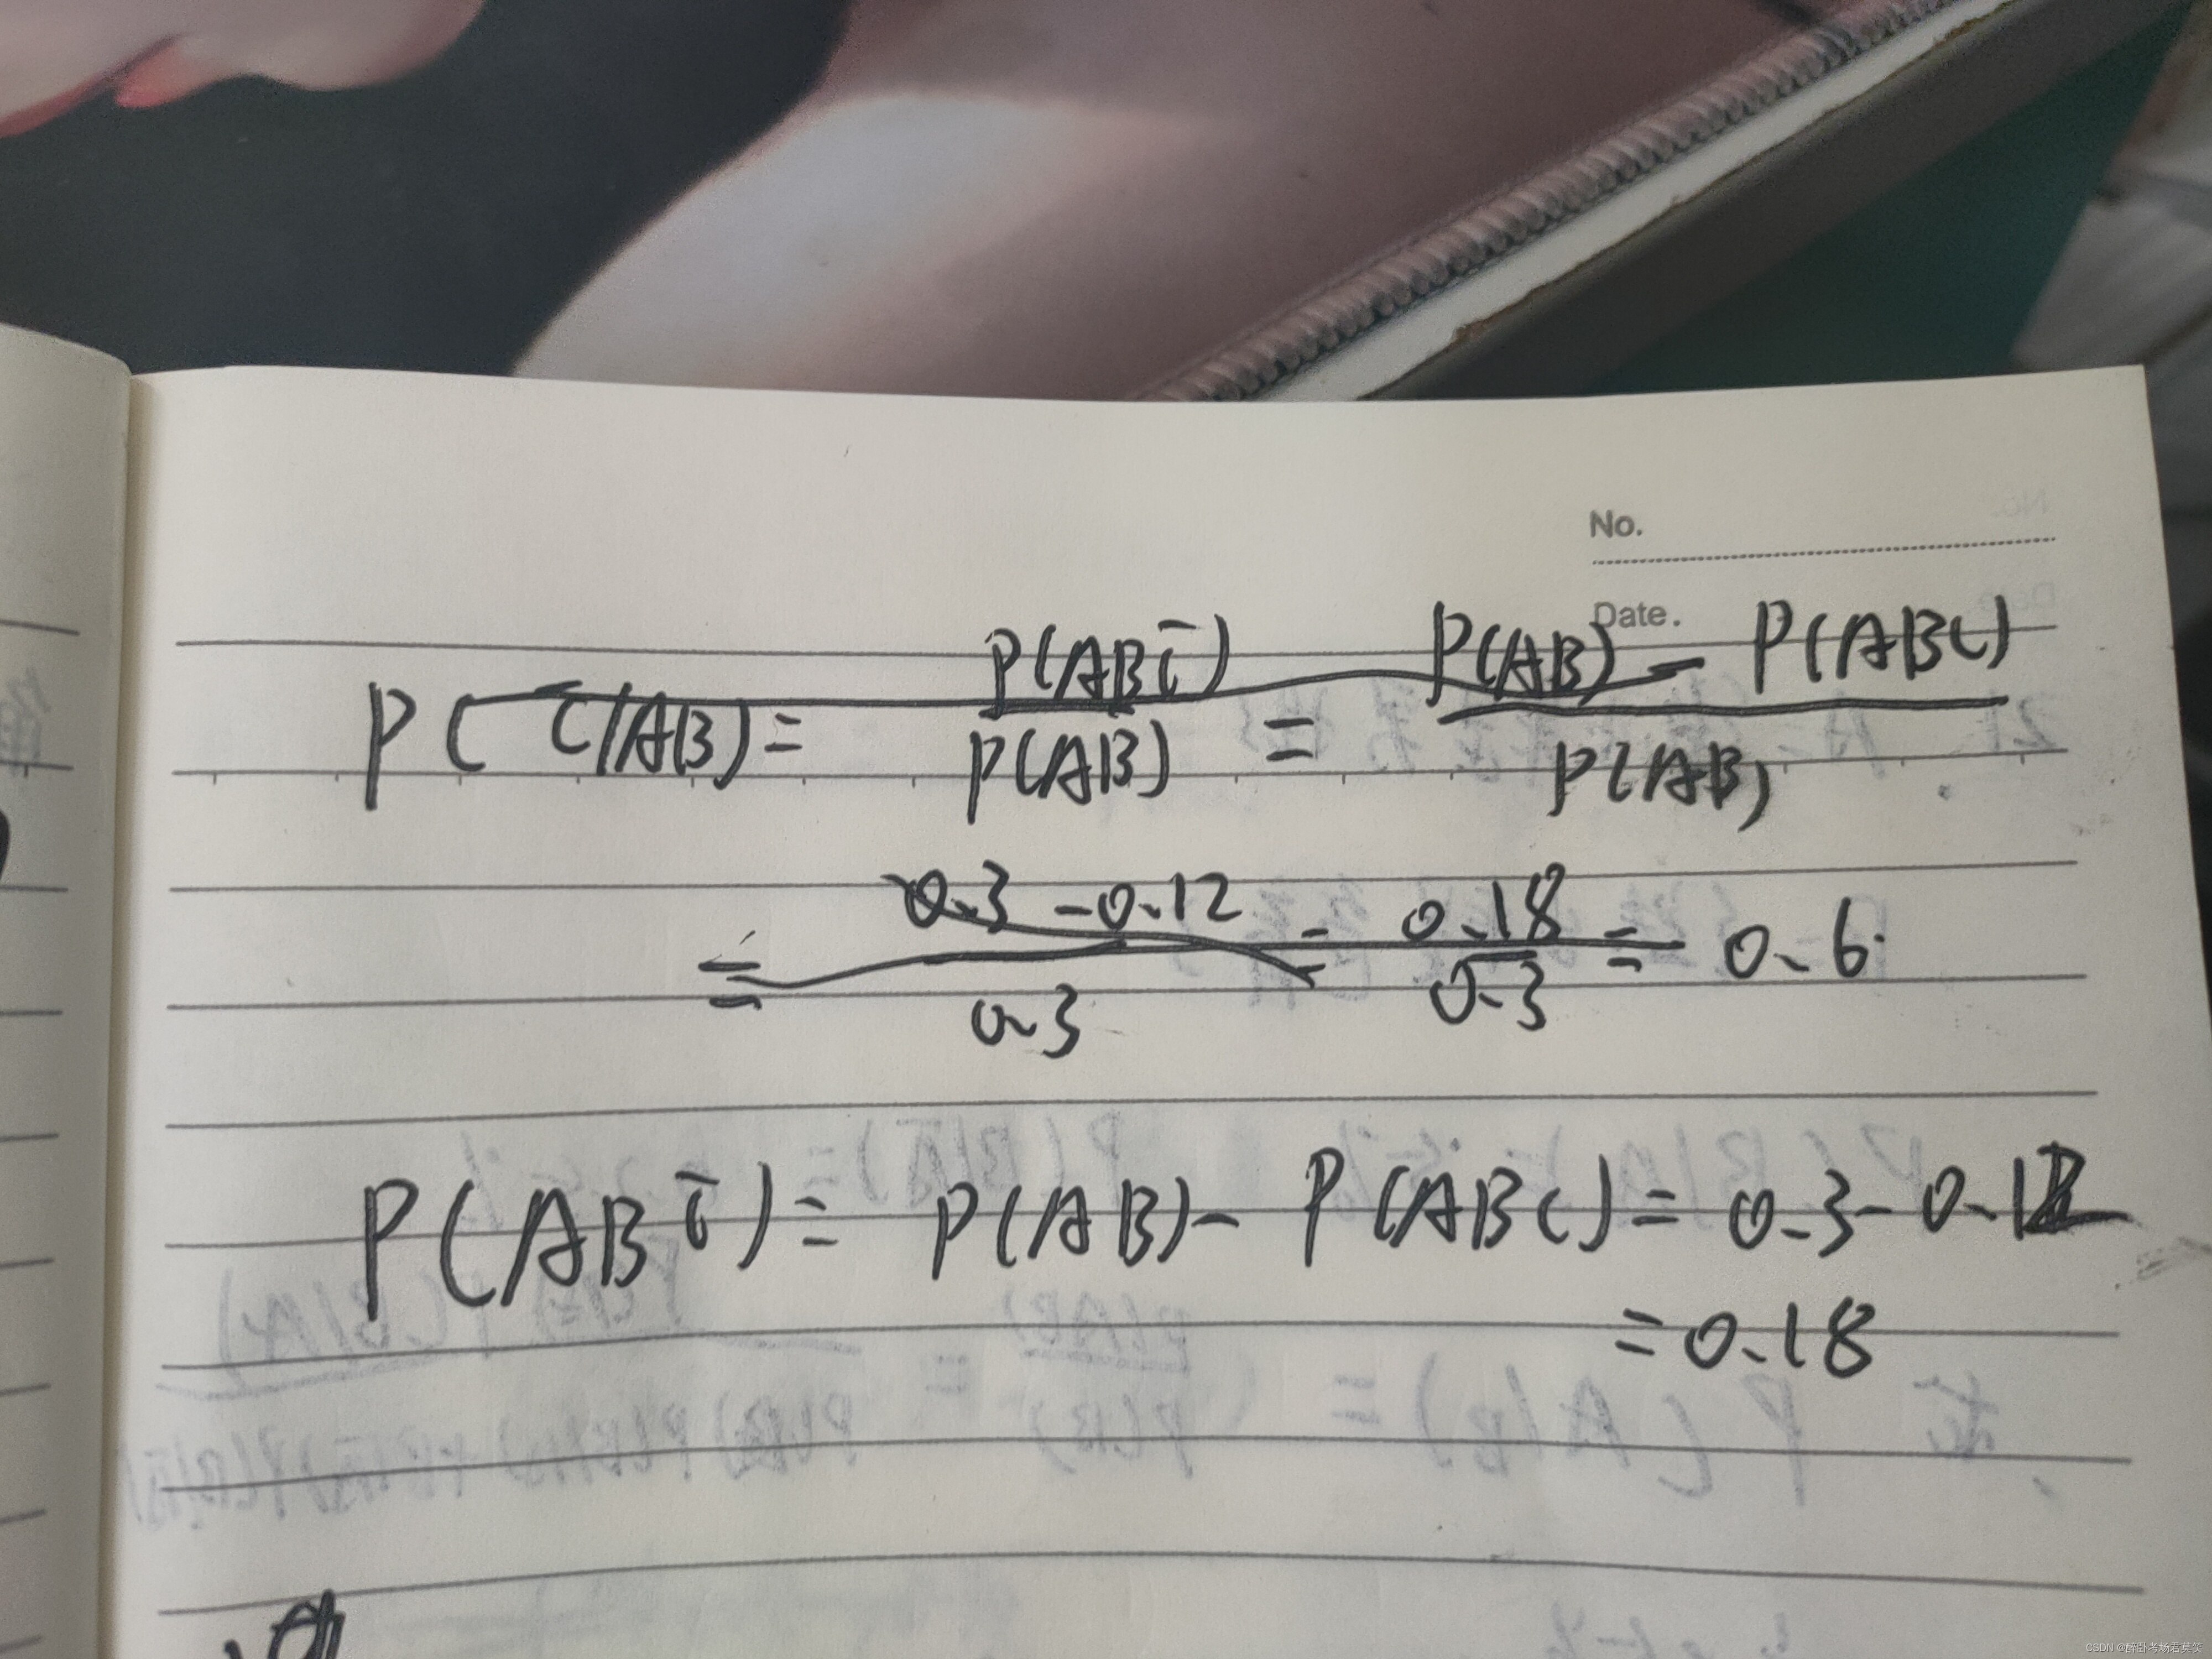 No.
Date.
P(C̄|AB) = P(ABC̄)/P(AB) = P(AB) - P(ABC)/P(AB)
= 0.3 - 0.12/0.3 = 0.18/0.3 = 0.6
P(ABC̄) = P(AB) - P(ABC) = 0.3 - 0.12
= 0.18
CSDN @醉卧考场君莫笑